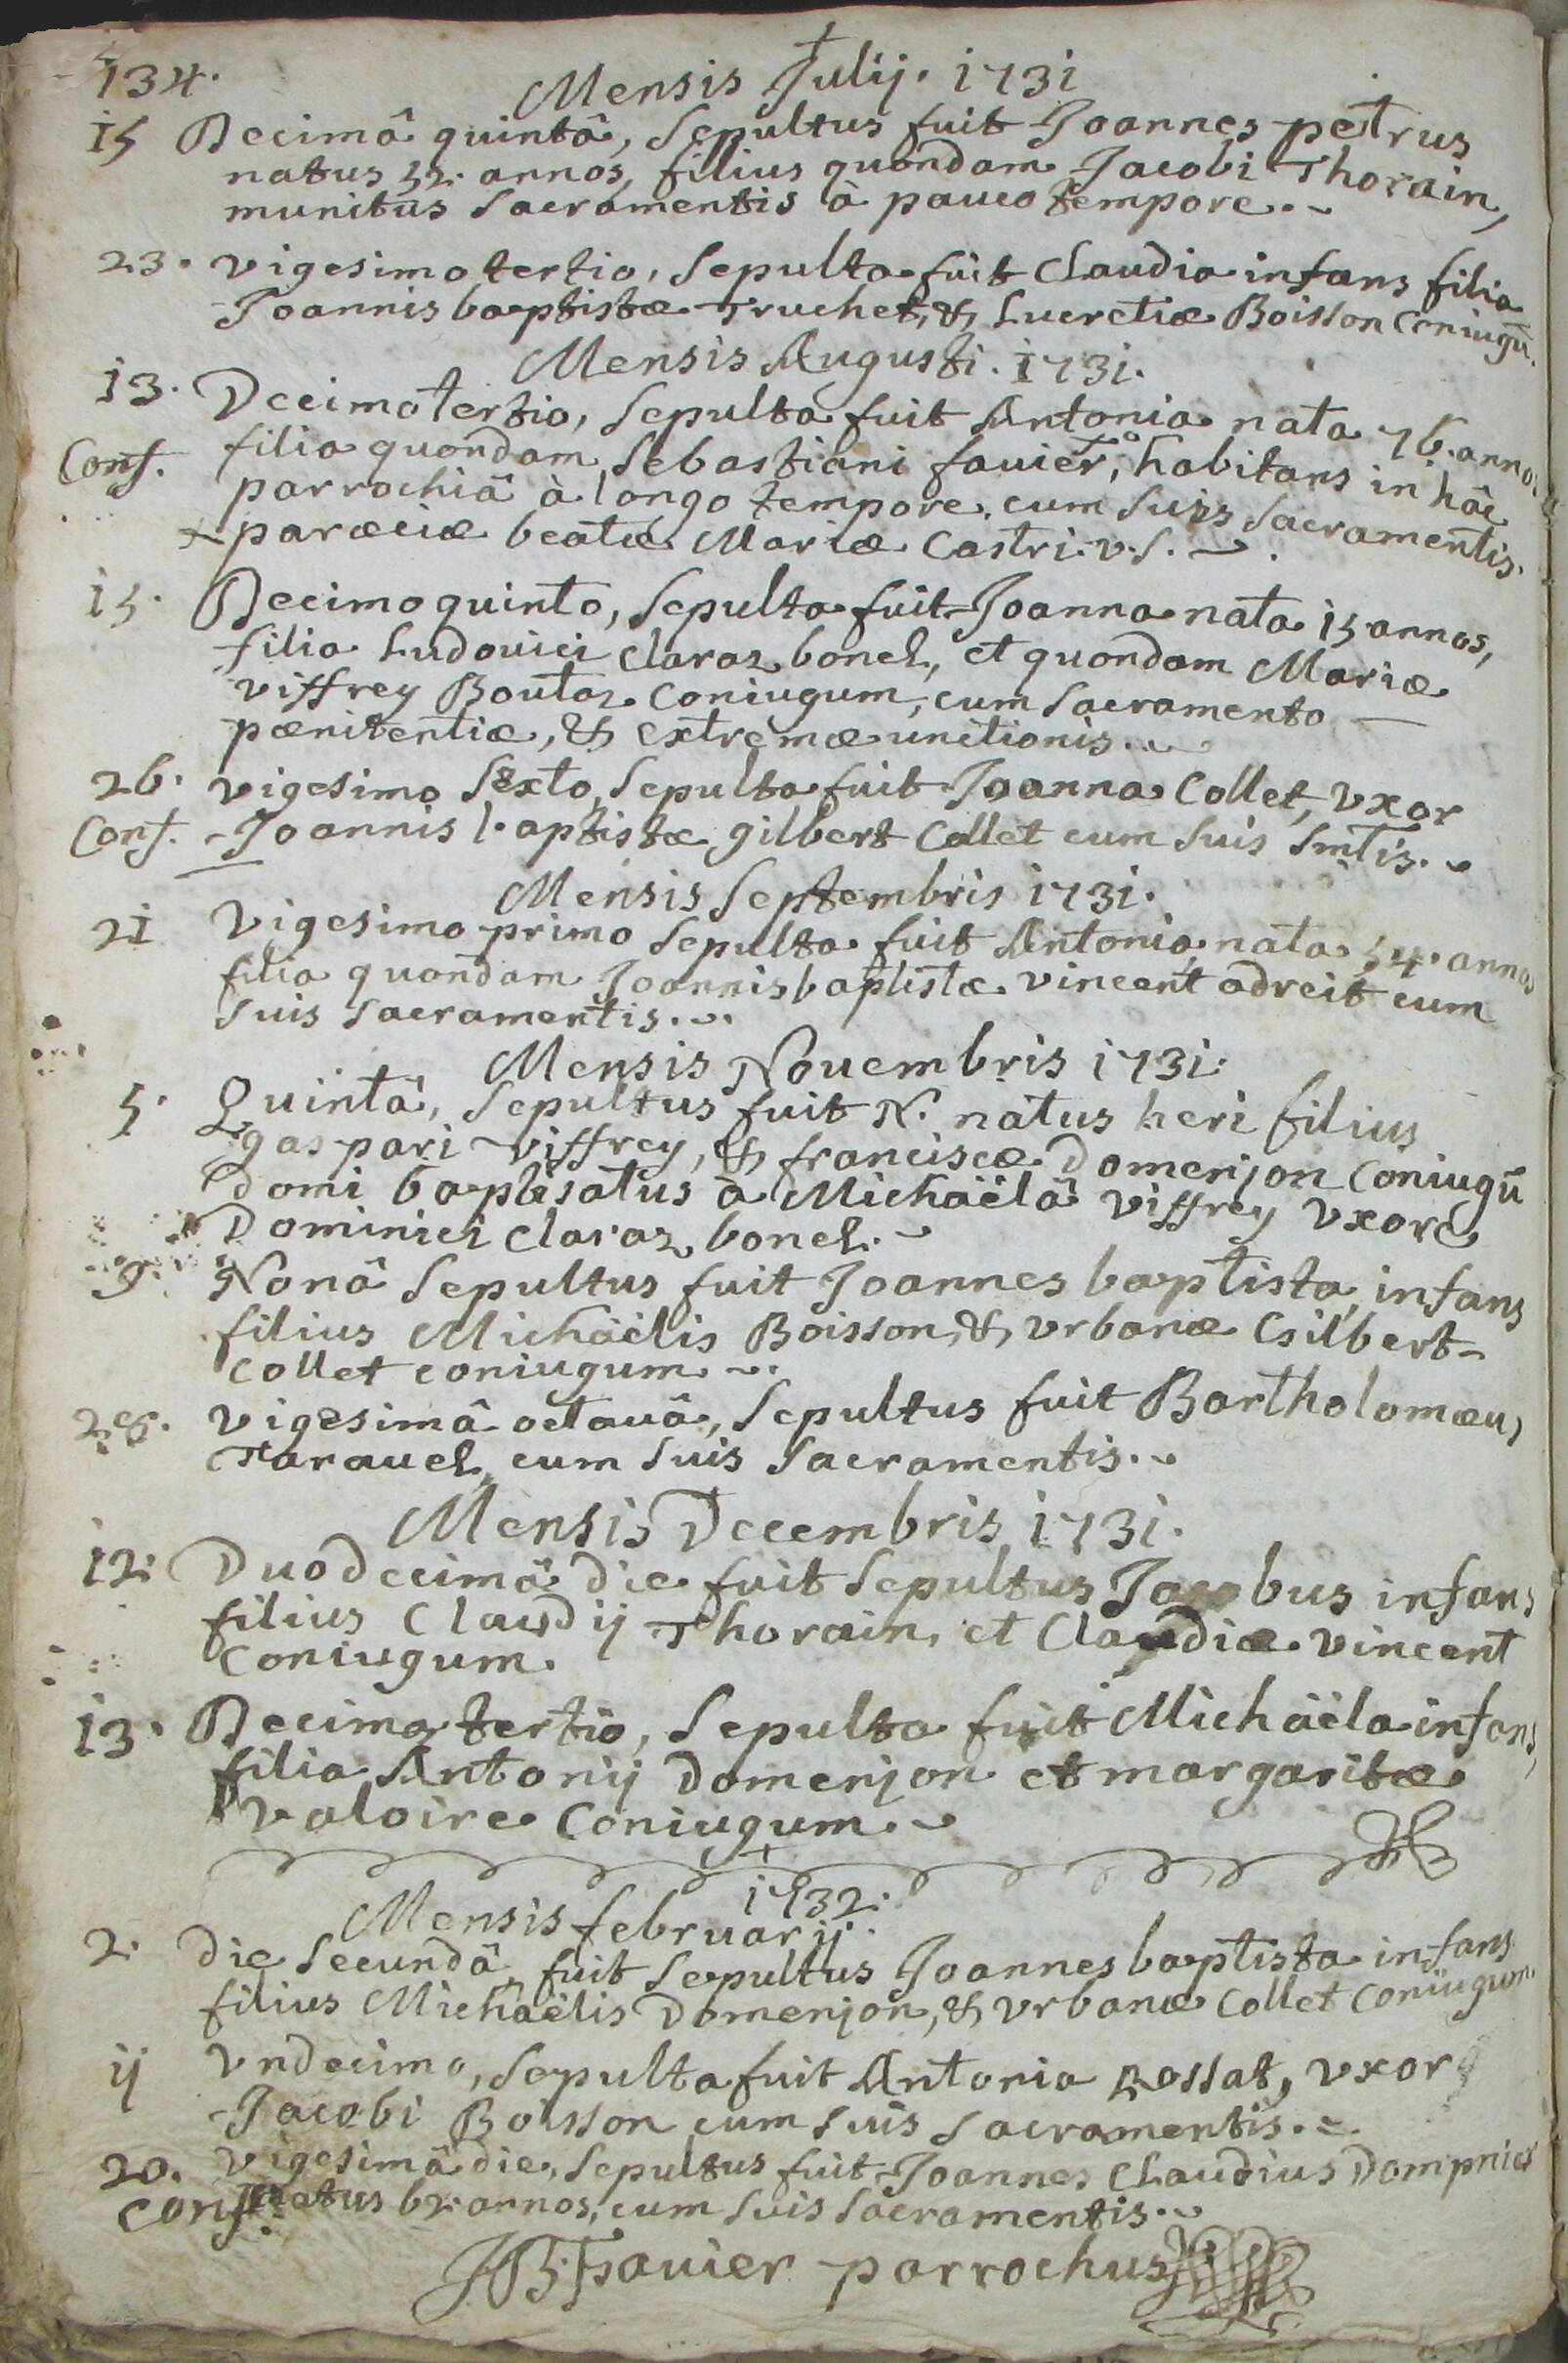 134.
Mensis Julij. 1731
15 Decimâ quintâ, Sepultus fuit Joannes petrus
natus 52. annos, filius quondam Jacobi Thorain,
munitus Sacramentis à pauco tempore.
23. vigesimo tertio, Sepulta fuit Claudia infans filia
Joannis baptistæ Truchet, & Lucretiæ Boisson coniugū.
Mensis Augusti. 1731.
13. Decimo tertio, Sepulta fuit Antonia nata 76. annos
Conf. filia quondam Sebastiani fauier, habitans in hâc
parrochiâ à longo tempore. cum suis sacramentis.
+ parœciæ beatæ Mariæ Castri. v. s.
15. Decimo quinto, Sepulta fuit Joanna nata 15 annos,
filia Ludouici claraz bonel, et quondam Mariæ
viffrey Boutaz coniugum, cum sacramento
pænitentiæ, & extremæ unctionis.
26. vigesimo Sexto, Sepulta fuit Joanna Collet, vxor
Conf. Joannis baptistæ gilbert Collet cum suis smtis.
Mensis Septembris 1731.
21 Vigesimo primo Sepulta fuit Antonia nata 54. annos
filia quondam Joannis baptistæ vincent adreit cum
suis sacramentis.
Mensis Nouembris 1731.
5. Quintâ, Sepultus fuit N. natus heri filius
gaspari viffrey, & franciscæ Domenjon coniugū
domi baptisatus à Michaëlâ viffrey vxore
Dominici claraz bonel.
9. Nonâ Sepultus fuit Joannes baptista infans
filius Michäelis Boisson, & vrbanæ Gilbert-
collet coniugum
28. vigesimâ octauâ, Sepultus fuit Bartholomæus
Tarauel, cum suis sacramentis.
Mensis Decembris 1731.
12. Duodecimâ die fuit Sepultus Jacobus infans
filius Claudij Thorain, et Claudiæ vincent
coniugum.
13. Decimo tertio, Sepulta fuit Michäela infans,
filia Antonij Domenjon et margaritæ
valoire coniugum.
1732.
Mensis februarij.
2. die Secundâ, fuit Sepultus Joannes baptista infans
filius Michäelis Domenjon, & vrbanæ Collet coniugum
ij vndecimo, Sepulta fuit Antonia Rossat, vxor
Jacobi Boisson cum suis sacramentis.
20. vigesimâ die, Sepultus fuit Joannes Claudius Dompnier
Conf. natus 62. annos, cum suis sacramentis.
JB Fauier parrochus